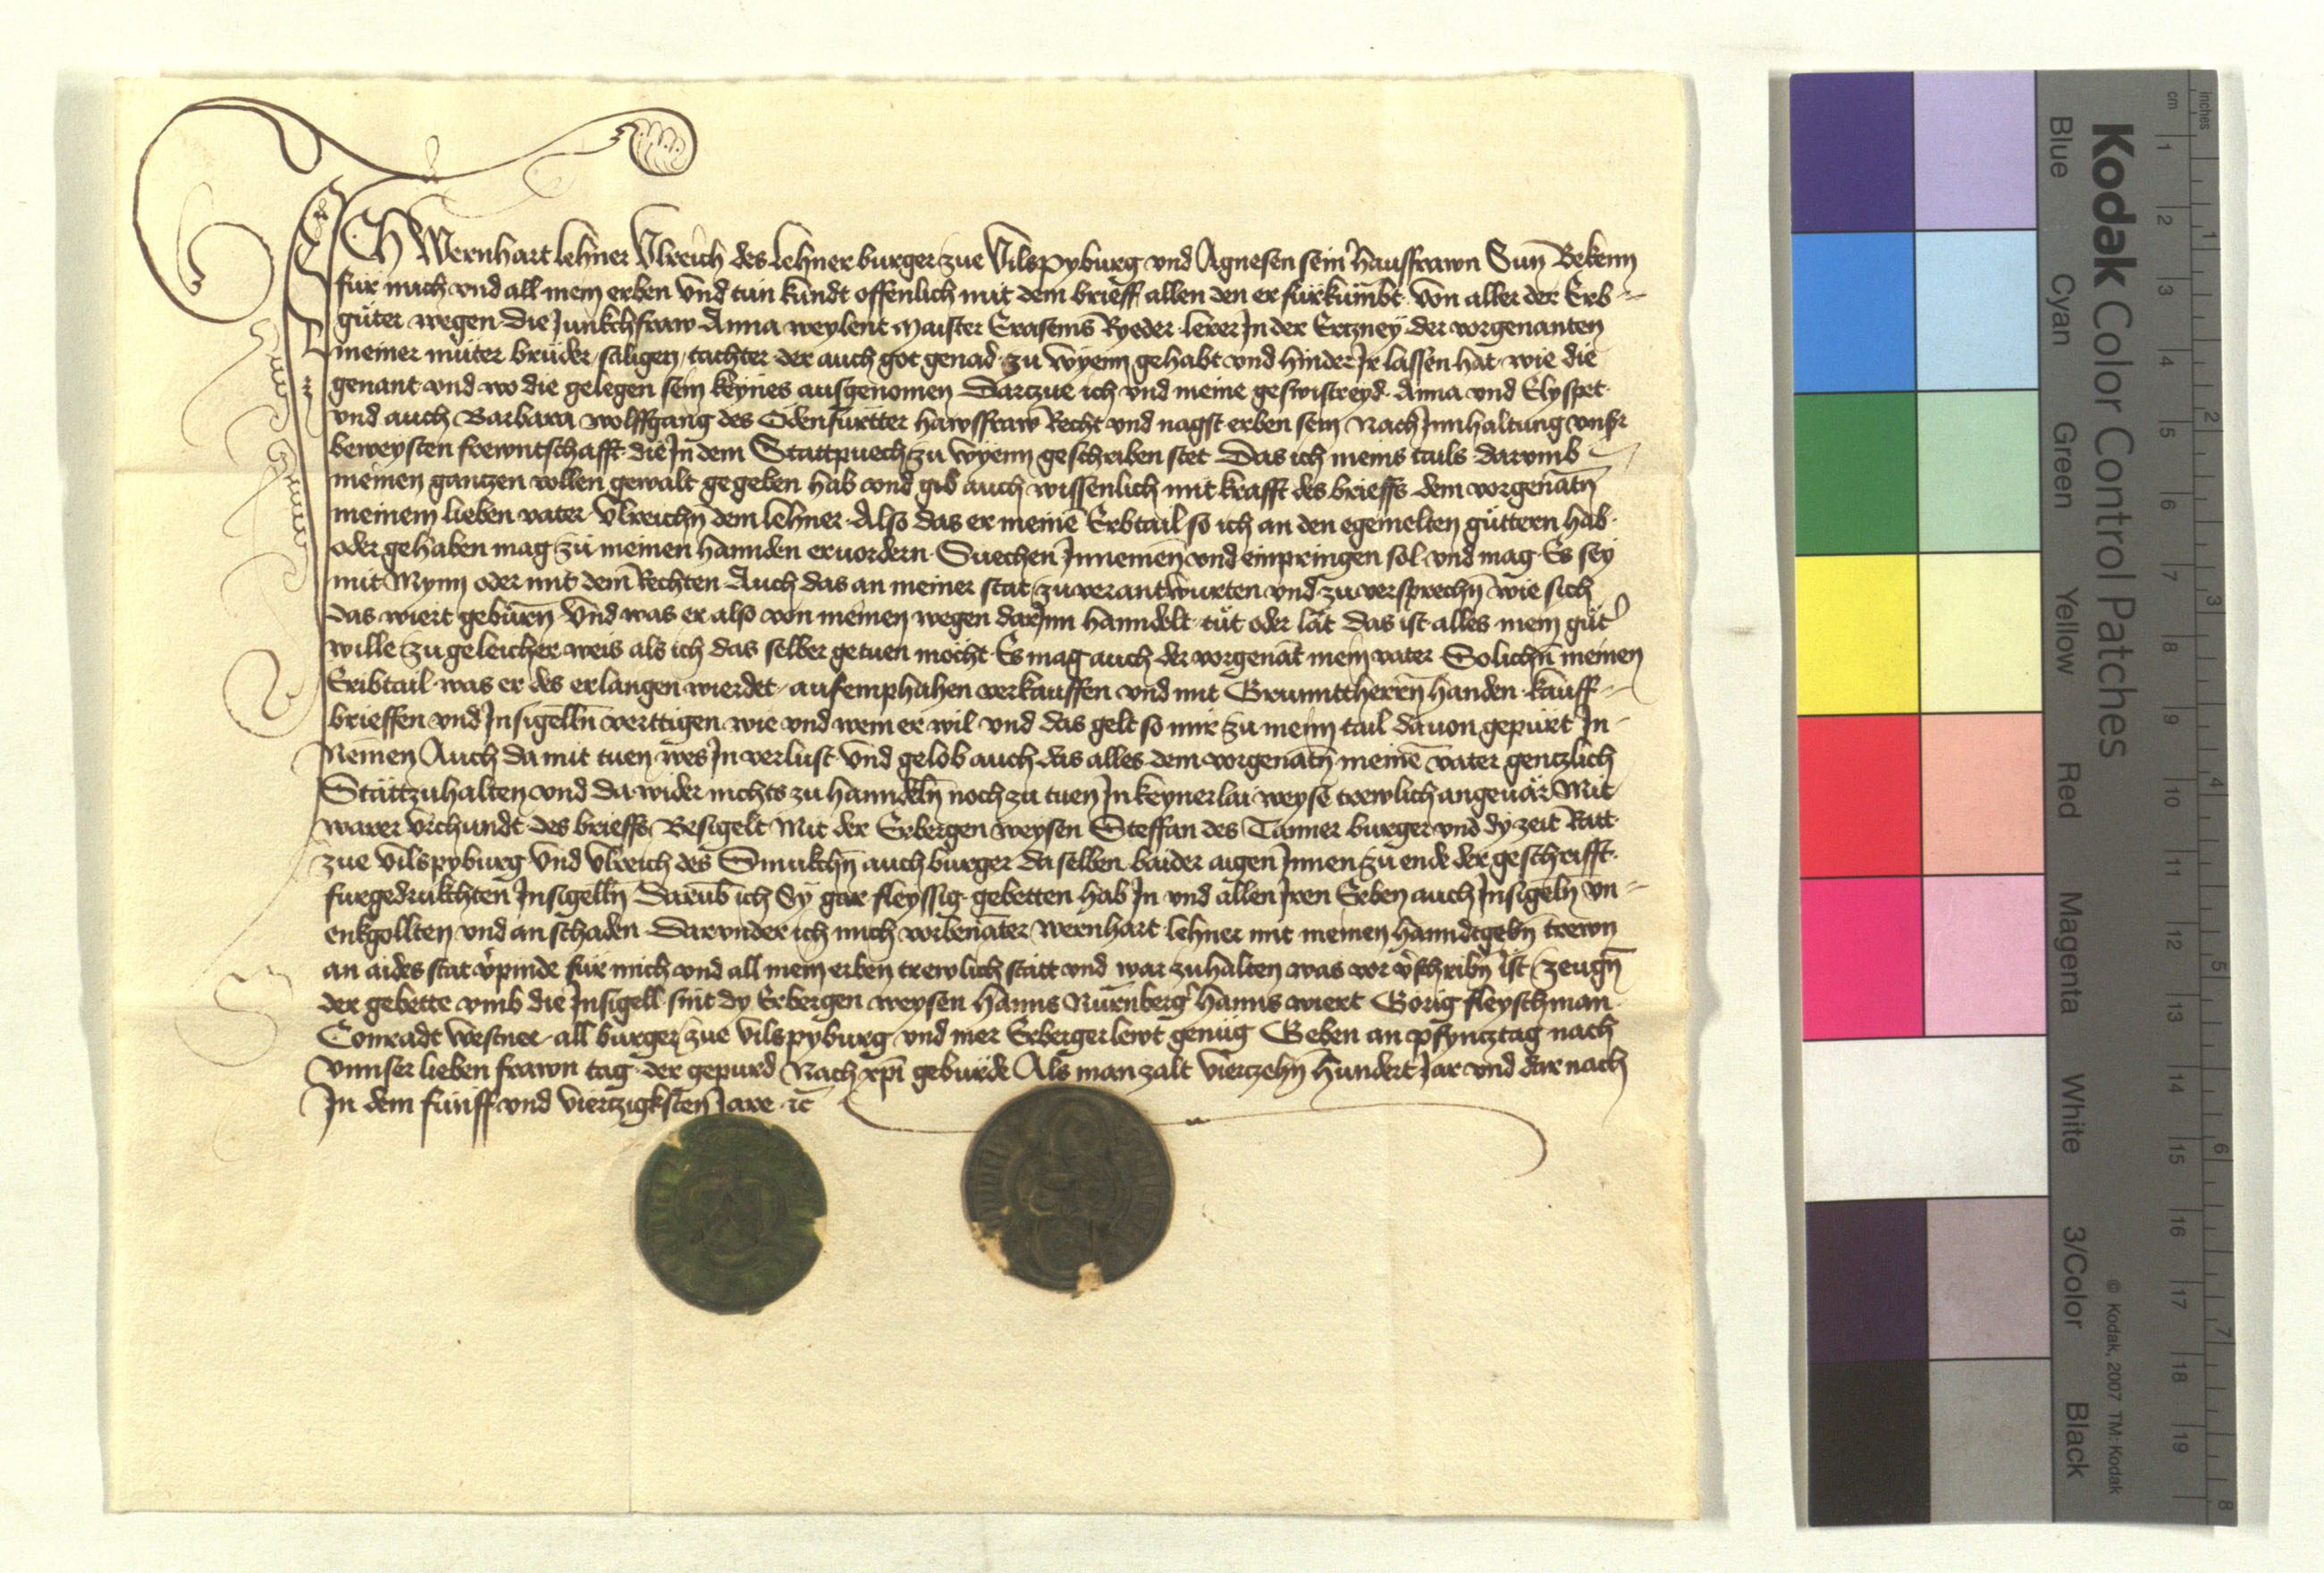 ICH Wernhart lehner Ulreich des lehner burger zue Vilspyburg vnd Agnesen sein' hausfrawn Sun Bekenn
für mich vnd all mein erben Vnd tun kundt offenlich mit dem brieff allen den er fürkumbt von aller der Erb-
güter wegen die Junkchfraw Anna weylent Maister Erasems Ryeder lerer Jn der Ertzney der vorgenanten
meiner müter brüder saligen tachter der auch got genad zu wyenn gehabt vnd hinder Jr lassen hat wie die
genant vnd wo die gelegen sein keynes ausgenomen Dartzue ich vnd meine geswistreyd Anna vnd Elyspet
vnd auch Barbara wolffgang des Odenfurtter hawsfraw Recht vnd nagst erben sein Nach Jnnhaltung vnsr
beweysten frewntschafft die Jn dem Stattpuech zu wyenn geschriben stet Das ich meins tails darumb
meinen gantzen vollen gewalt gegeben hab vnd gib auch wissenlich mit krafft des brieffs dem vorgenātn
meinem lieben vater Vlreichn dem lehner Also das er meinē Erbtail so ich an den egemelten güttern hab
oder gehaben mag zu meinen hannden eruordern Suechen Jnnemen vnd einpringen sol vnd mag Es sey
mit Mynn oder mit dem Rechten Auch das an meiner stat zu verantwurten vnd zu versprechn wie sich
das wiert gebürn Vnd was er also von meinen wegen darJnn hanndelt tüt oder lät das ist alles mein güt'
wille zu geleicher weis als ich das selber getuen möcht Es mag auch der vorgenāt mein vater Solichn meinen
Eribtail was er des erlangen wierdet aufemphahen verkauffen vnd mit Grunnttherrn handen kauff-
brieffen vnd Jnsigelln verttigen wie vnd wem er wil vnd das gelt so mir zu meim tail dauon gepürt Jn-
Nemen Auch da mit tuen wes Jn verlust Vnd gelob auch das alles dem vorgenātn meinē vater gentzlich
Stättzuhalten vnd da wider nichts zu hanndeln noch zu tuen Jn keynerlai weyse trewlich angeuär Mit
warer Vrchundt des brieffs Besigelt Mit der Erbergen weysen Steffan des Tanner burger vnd dy zeit Ratt
zue Vilspyburg Vnd Vlreich des Smukchn auch burger daselben baider aigen Jnnen zu ende der geschrifft
furgedrukchten Jnsigelln Darūb ich Sy gar fleyssig gebetten hab Jn vnd allen Jren Erben auch Jnsigeln vn-
enkgollten vnd an schaden Darunder ich mich vorbenāter Wernhart lehner mit meinen hanndtgebn trewn
an aides stat v'pinde für mich vnd all mein erben trewlich stätt vnd war zuhalten was vor v'schribn ist zeugn
der gebette vmb die Jnsigell sint dy Erbergen weysen Hanns Nürnberg' Hanns wiert Görig fleyschman
Conradt Westner all burger zue Vilspyburg vnd mer Erberger lewt genüg Geben an pfyncztag nach
Vnnser lieben frawn tag der gepurd Nach xpi gebürde Als man zalt Vierzehn Hundert Jar vnd dar nach
Jn dem fünff vnd Viertzigksten Jare ꝛc
Kodak Color Control Patches
Blue Cyan Green Yellow Red Magenta White 3/Color Black
inches 1 2 3 4 5 6 7 8
cm 1 2 3 4 5 6 7 8 9 10 11 12 13 14 15 16 17 18 19
© Kodak, 2007 TM: Kodak